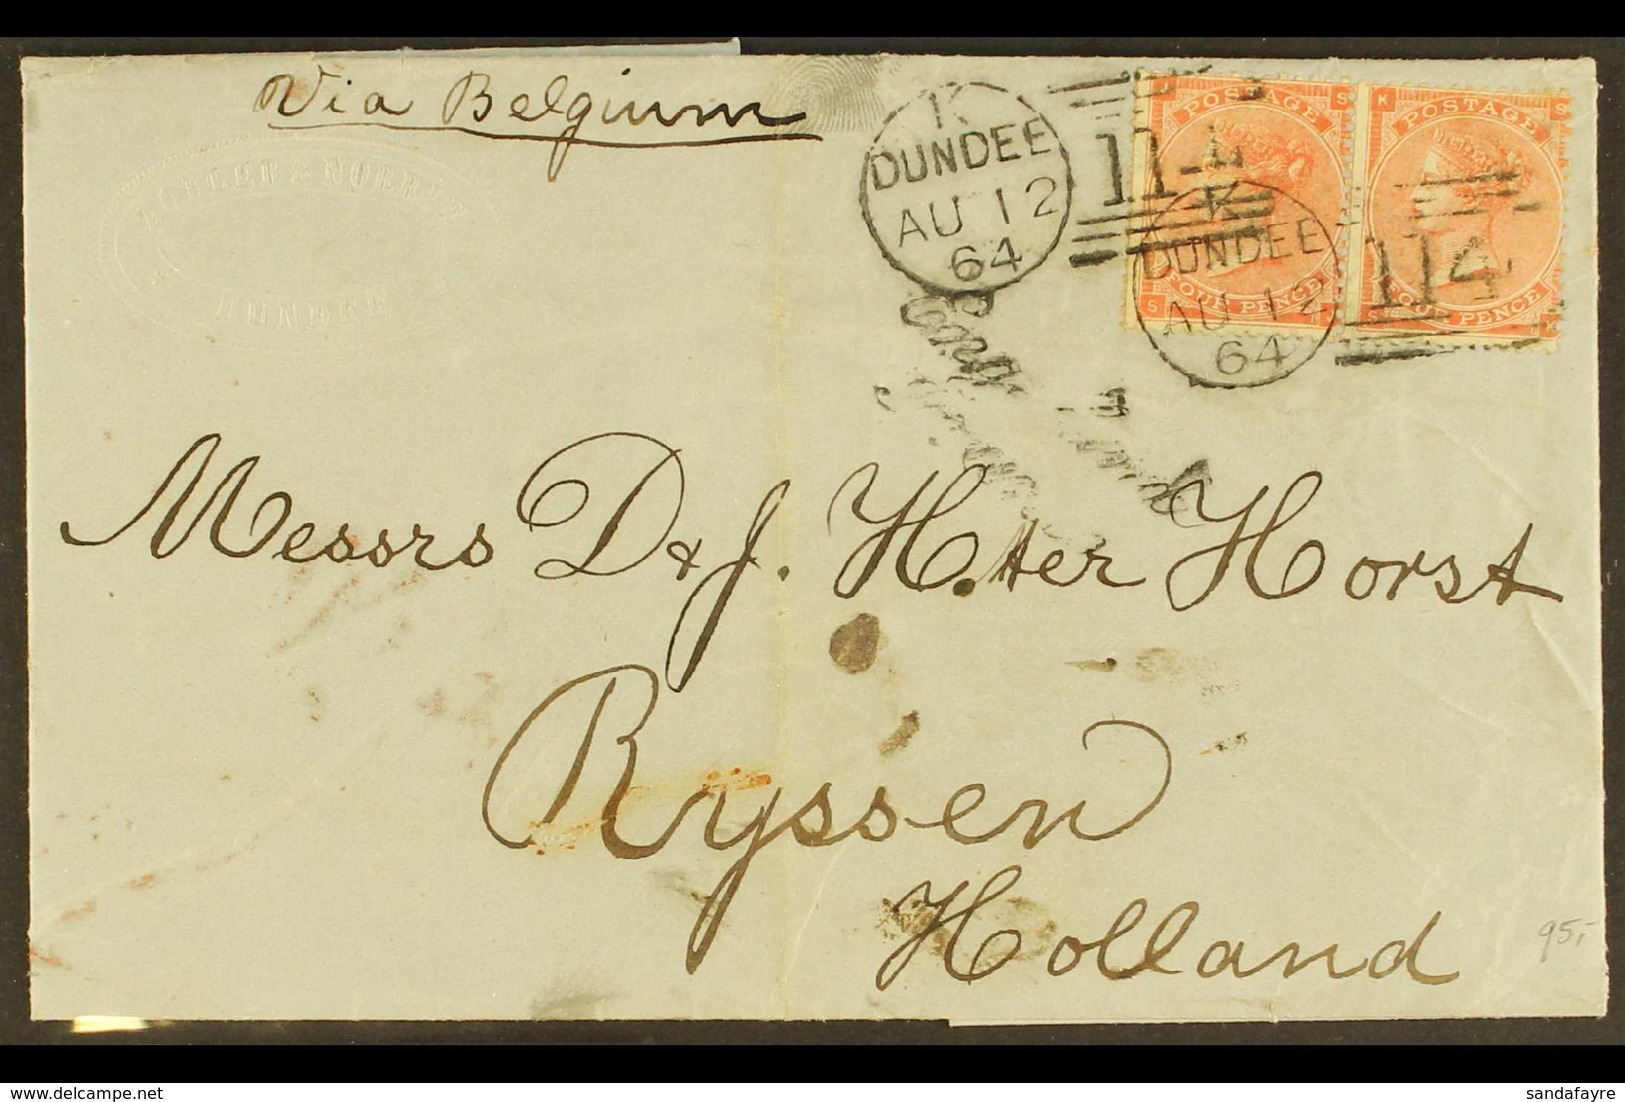 Via Belgium
DUNDEE
K
DUNDEE
AU 12
64
114
K
DUNDEE
AU 12
64
114
POSTAGE
FOUR PENCE
POSTAGE
FOUR PENCE
Messrs D & J. H. ter Horst
Ryssen
Holland
95,-
sandafayre